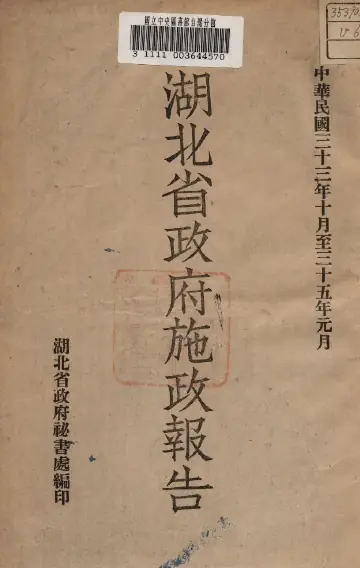 國立中央圖書館台灣分館
3 1111 003644570
中華民國三十三年十月至三十五年元月
湖北省政府施政報告
湖北省政府祕書處編印